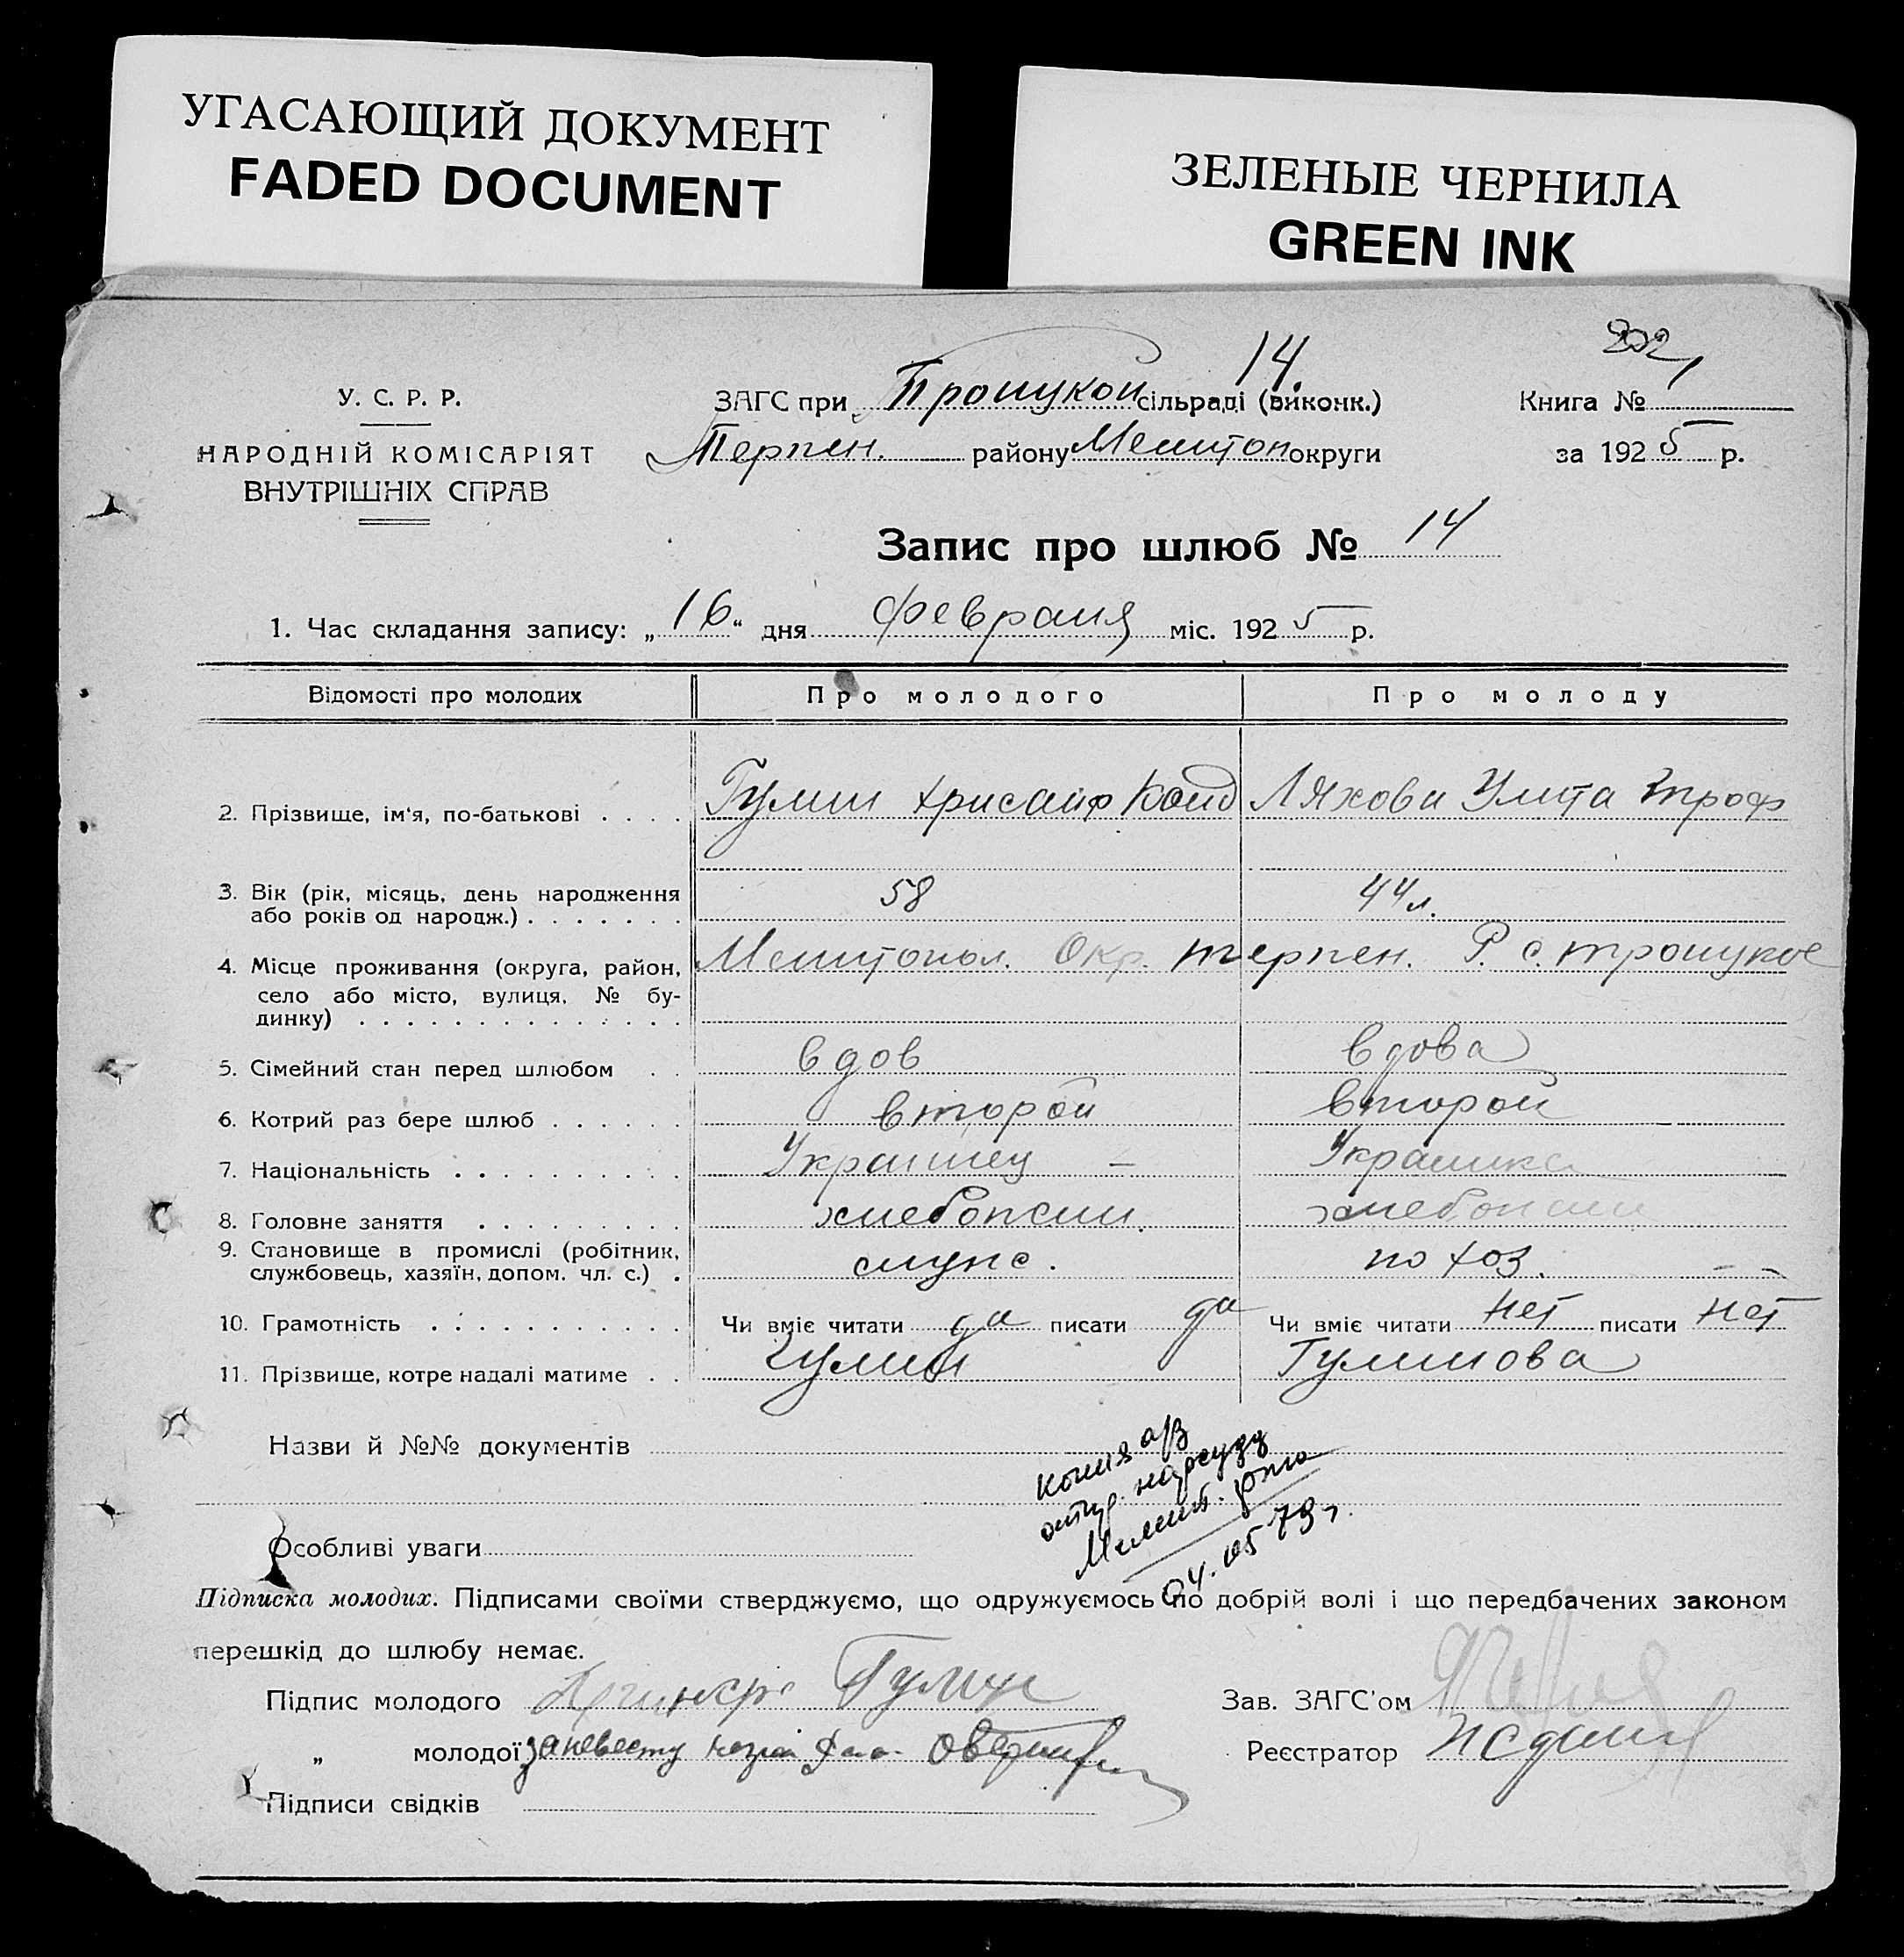 УГАСАЮЩИЙ ДОКУМЕНТ
FADED DOCUMENT
ЗЕЛЕНЫЕ ЧЕРНИЛА
GREEN INK
202
14.
У. С. Р. Р.
НАРОДНІЙ КОМІСАРІЯТ
ВНУТРІШНІХ СПРАВ
ЗАГС при Троицкой сільраді (виконк.)
Терпен. району Мелитоп округи
Книга № 1
за 1925 р.
Запис про шлюб № 14
1. Час складання запису: „16“ дня февраля міс. 1925 р.
Відомості про молодих Про молодого Про молоду
2. Прізвище, ім'я, по-батькові Гулин Хрисанф Ляхова Улита Троф
3. Вік (рік, місяць, день народження
або років од народж.) 58 44 л.
4. Місце проживання (округа, район, Мелитопол. Окр. Терпен. Р. с. Троицкое
село або місто, вулиця, № бу-
динку)
5. Сімейний стан перед шлюбом вдов вдова
6. Котрий раз бере шлюб второй второй
7. Національність Украинец – Украинка
8. Головне заняття хлебопаш. хлебопаш
9. Становище в промислі (робітник,
службовець, хазяїн, допом. чл. с.) по хоз.
10. Грамотність Чи вміє читати да писати да Чи вміє читати нет писати нет
11. Прізвище, котре надалі матиме Гулин Гулинова
Назви й №№ документів
копия а/з
отпр. нарсуду
Мелит. р-на
04.05.79 г.
Особливі уваги
Підписка молодих. Підписами своїми стверджуємо, що одружуємось по добрій волі і що передбачених законом
перешкід до шлюбу немає.
Підпис молодого Гулин
Зав. ЗАГС'ом
„ молодої за невесту
Реєстратор
Підписи свідків